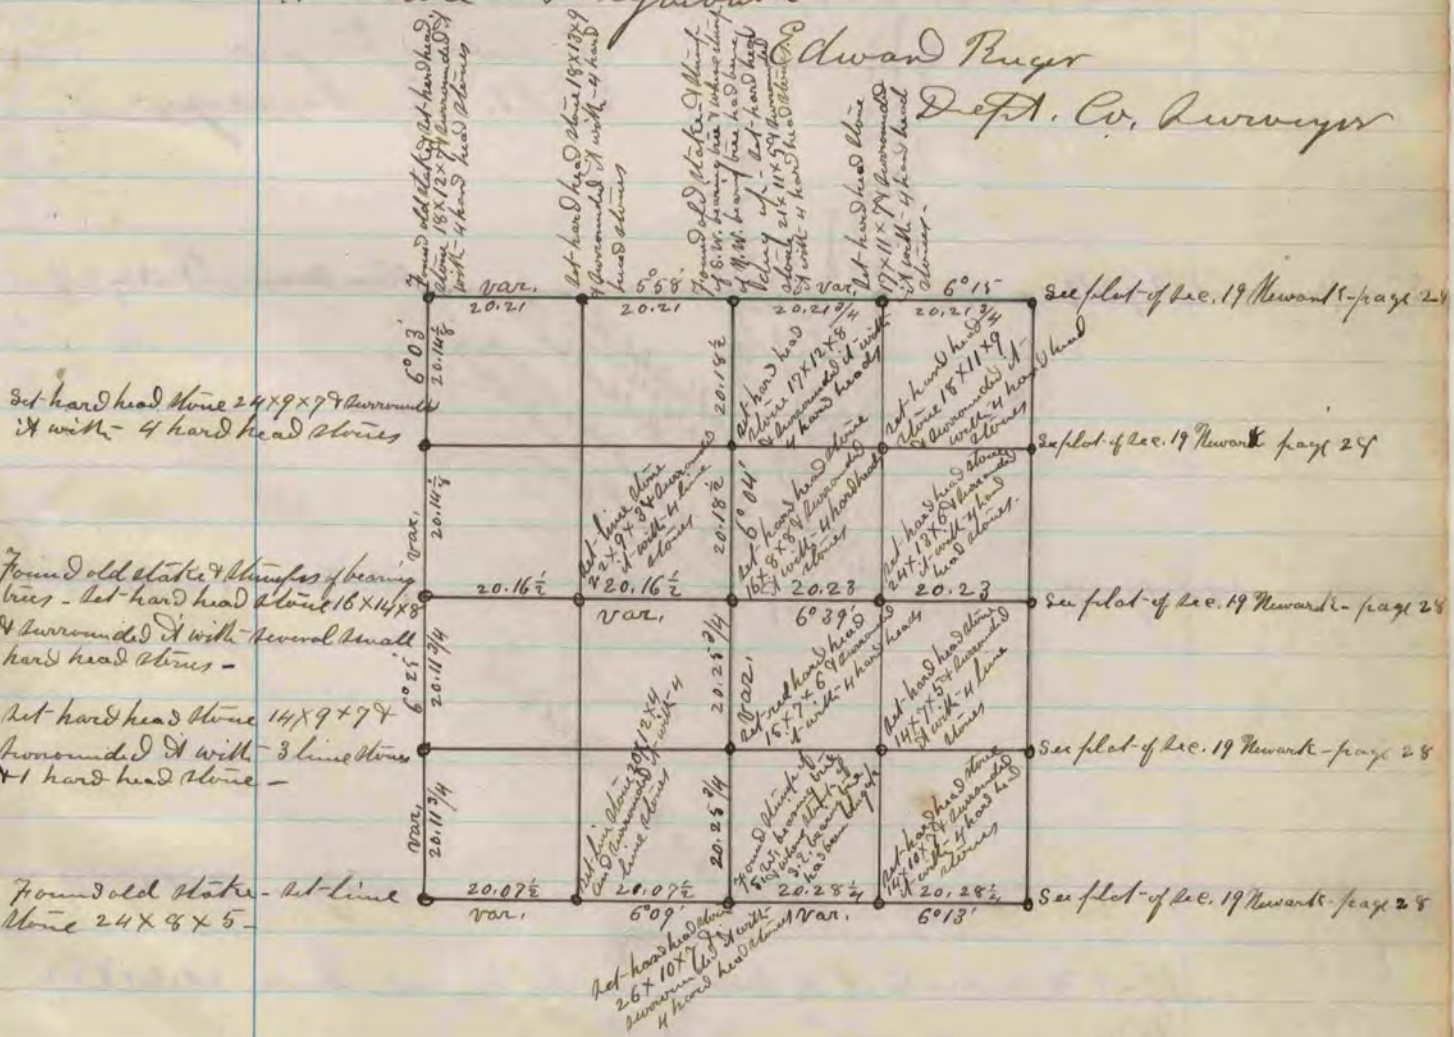 Edward Ruger
Dept. Co. Surveyor
Found old stake & set hard head
stone 18 x 12 x 7 & surrounded it
with 4 hard head stones
Set hard head stone 18 x 13 x 9
& surrounded it with 4 hard
head stones
Found old stake & stump
of S.W. bearing tree & where stump
of N.W. bearing tree had been
dug up - set hard head
stone 21 x 11 x 5 & surrounded
it with 4 hard head stones
Set hard head stone
17 x 11 x 7 & surrounded
it with 4 hard head
stones -
var. 5°58' var. 6°15
20.21 20.21 20.21 3/4 20.21 3/4
See plat of sec. 19 Newark - page 28
6°03'
20.14 1/8
20.18 1/2
set hard head
stone 17 x 12 x 8
& surrounded it with
4 hard heads
set hard head
stone 18 x 11 x 9
& surrounded it
with 4 hard head
stones
Set hard head stone 24 x 9 x 7 & surrounded
it with - 4 hard head stones
See plat of sec. 19 Newark page 28
var.
20.14 1/8
set lime stone
22 x 9 x 3 & surrounded
it with 4 lime
stones
20.18 1/2
6°04'
set hard head stone
16 x 8 x 8 & surrounded
it with 4 hard head
stones
set hard head stone
24 x 13 x 6 & surrounded
it with 4 hard
head stones.
Found old stake & stumps of bearing
trees - set hard head stone 16 x 14 x 8
& surrounded it with several small
hard head stones -
20.16 1/2 20.16 1/2 20.23 20.23
var. 6°39'
See plat of sec. 19 Newark - page 28
6°25'
20.11 3/4
20.25 3/4
var.
set red hard head
15 x 7 x 6 & surrounded
it with 4 hard heads
set hard head stone
14 x 7 x 5 & surrounded
it with 4 lime
stones
Set hard head stone 14 x 9 x 7 &
surrounded it with - 3 lime stones
& 1 hard head stone -
See plat of sec. 19 Newark - page 28
var.
20.11 3/4
set lime stone 20 x 12 x 4
and surrounded it with 4
lime stones
20.25 3/4
Found stump of
S.W. bearing tree
& where stump of
S.E. bearing tree
had been dug up
set hard head stone
14 x 10 x 7 & surrounded
it with 4 hard head
stones
Found old stake - set lime
stone 24 x 8 x 5 -
20.07 1/2 20.07 1/2 20.28 1/4 20.28 1/4
var. 6°09' var. 6°13'
See plat of sec. 19 Newark - page 28
set hard head stone
26 x 10 x 7 &
surrounded it with
4 hard head stones